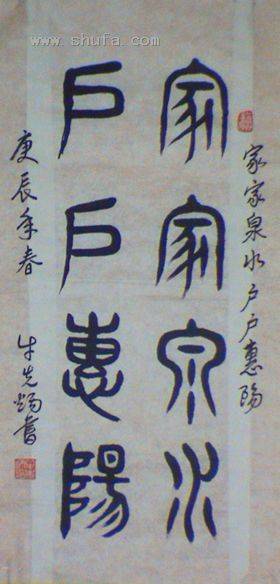 www.shufa.com
家家泉水户户惠陽
家家泉水
户户惠陽
庚辰年春
牛先炀書